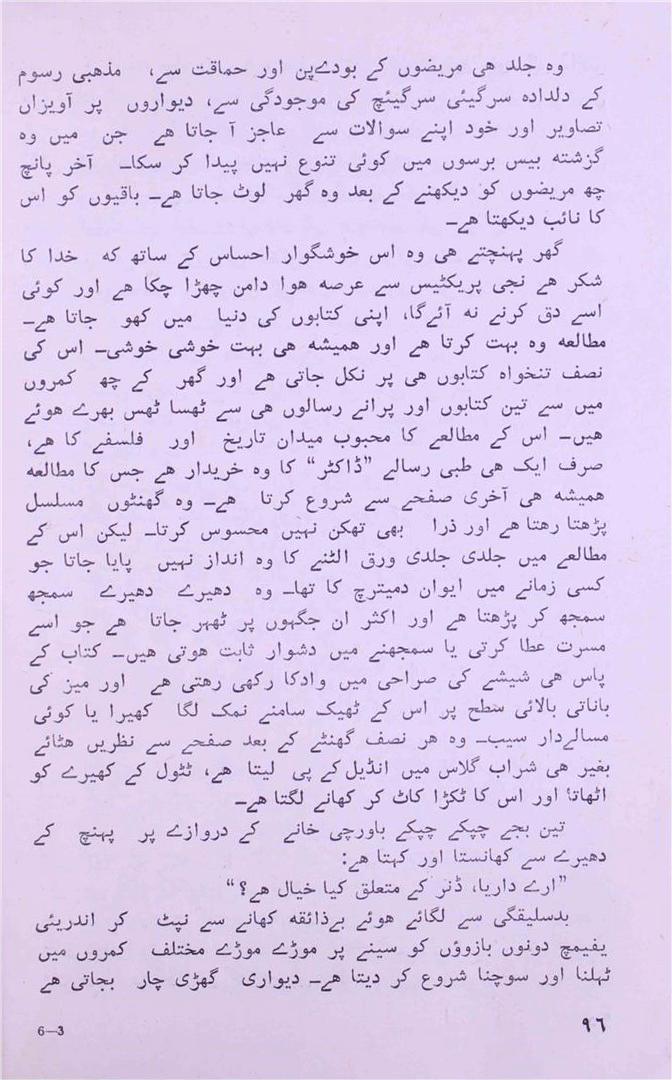 وہ جلد ہی مریضوں کے بودےپن اور حماقت سے، مذہبی رسوم
کے دلدادہ سرگیئی سرگیئچ کی موجودگی سے، دیواروں پر آویزاں
تصاویر اور خود اپنے سوالات سے عاجز آ جاتا ہے جن میں وہ
گزشتہ بیس برسوں میں کوئی تنوع نہیں پیدا کر سکا۔ آخر پانچ
چھ مریضوں کو دیکھنے کے بعد وہ گھر لوٹ جاتا ہے۔ باقیوں کو اس
کا نائب دیکھتا ہے۔
گھر پہنچتے ہی وہ اس خوشگوار احساس کے ساتھ کہ خدا کا
شکر ہے نجی پریکٹیس سے عرصہ ہوا دامن چھڑا چکا ہے اور کوئی
اسے دق کرنے نہ آئےگا، اپنی کتابوں کی دنیا میں کھو جاتا ہے۔
مطالعہ وہ بہت کرتا ہے اور ہمیشہ ہی بہت خوشی خوشی۔ اس کی
نصف تنخواہ کتابوں ہی پر نکل جاتی ہے اور گھر کے چھ کمروں
میں سے تین کتابوں اور پرانے رسالوں ہی سے ٹھسا ٹھس بھرے ہوئے
ہیں۔ اس کے مطالعے کا محبوب میدان تاریخ اور فلسفے کا ہے،
صرف ایک ہی طبی رسالے ”ڈاکٹر“ کا وہ خریدار ہے جس کا مطالعہ
ہمیشہ ہی آخری صفحے سے شروع کرتا ہے۔ وہ گھنٹوں مسلسل
پڑھتا رہتا ہے اور ذرا بھی تھکن نہیں محسوس کرتا۔ لیکن اس کے
مطالعے میں جلدی جلدی ورق الٹنے کا وہ انداز نہیں پایا جاتا جو
کسی زمانے میں ایوان دمیترچ کا تھا۔ وہ دھیرے دھیرے سمجھ
سمجھ کر پڑھتا ہے اور اکثر ان جگہوں پر ٹھہر جاتا ہے جو اسے
مسرت عطا کرتی یا سمجھنے میں دشوار ثابت ہوتی ہیں۔ کتاب کے
پاس ہی شیشے کی صراحی میں وادکا رکھی رہتی ہے اور میز کی
باناتی بالائی سطح پر اس کے ٹھیک سامنے نمک لگا کھیرا یا کوئی
مسالےدار سیب۔ وہ ہر نصف گھنٹے کے بعد صفحے سے نظریں ہٹائے
بغیر ہی شراب گلاس میں انڈیل کے پی لیتا ہے، ٹٹول کے کھیرے کو
اٹھاتا اور اس کا ٹکڑا کاٹ کر کھانے لگتا ہے۔
تین بجے چپکے چپکے باورچی خانے کے دروازے پر پہنچ کے
دھیرے سے کھانستا اور کہتا ہے:
”ارے داریا، ڈنر کے متعلق کیا خیال ہے؟“
بدسلیقگی سے لگائے ہوئے بےذائقہ کھانے سے نپٹ کر اندریئی
یفیمچ دونوں بازوؤں کو سینے پر موڑے موڑے مختلف کمروں میں
ٹہلنا اور سوچنا شروع کر دیتا ہے۔ دیواری گھڑی چار بجاتی ہے
6—3
۹۶